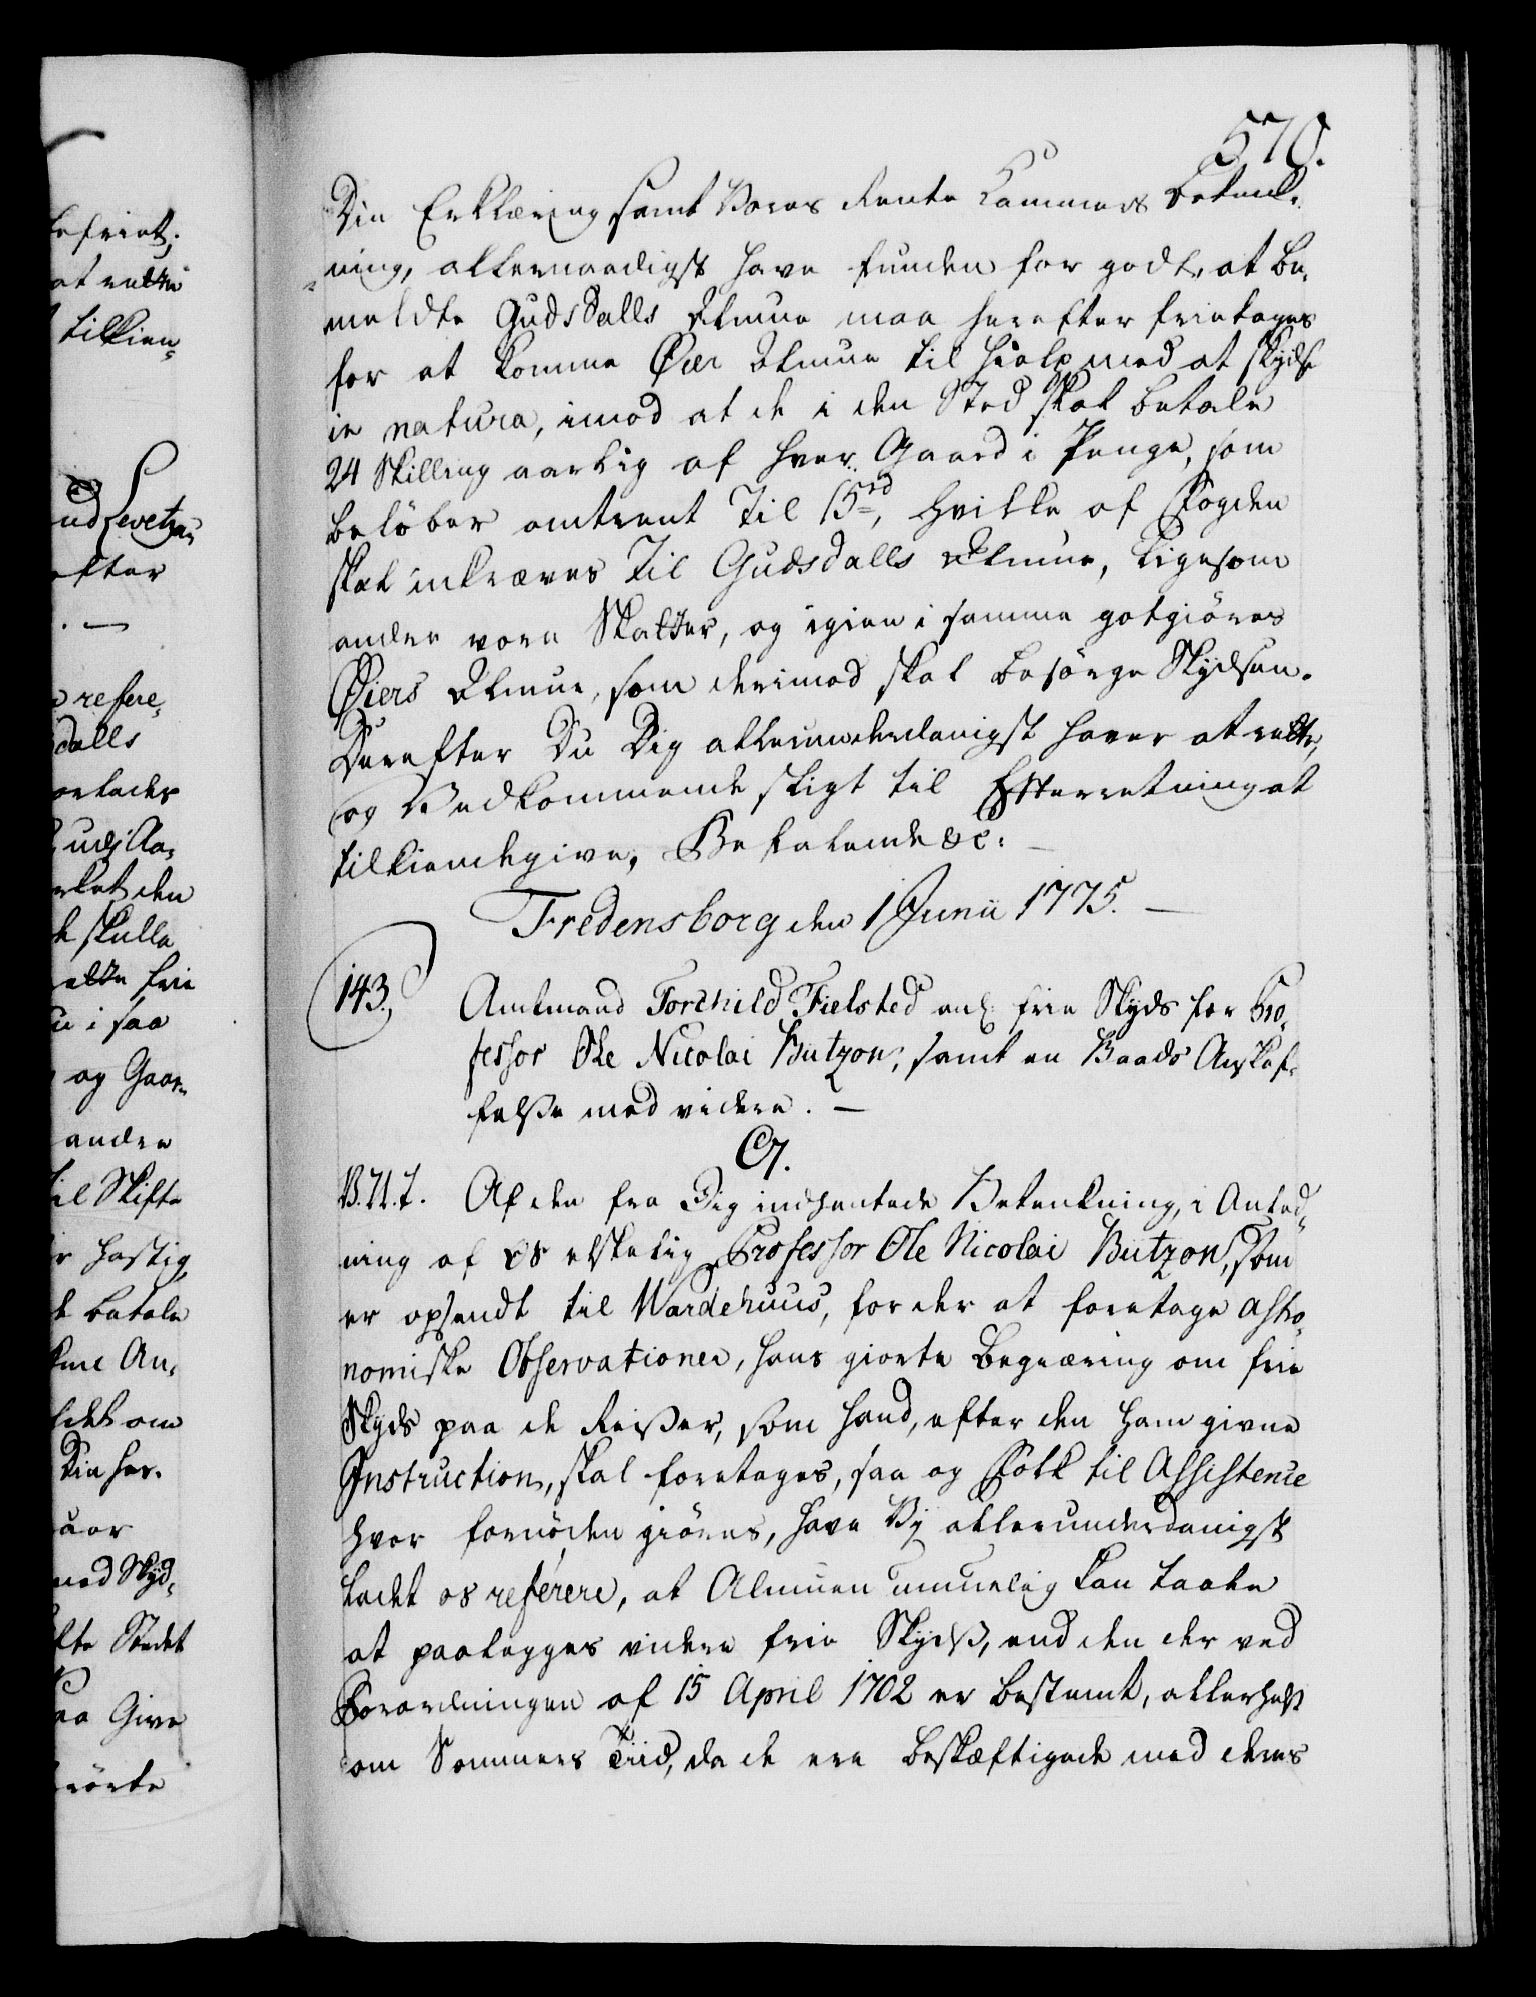 570.
Din Erklæring samt Vores Rente Kammers Betænk-
ning, allernaadigst have funden for godt, at be-
meldte Gudsdalls Almue maa herefter fritages
for at komme Øier Almue til hielp med at skydse
in natura, imod at de i den Sted skal betale
24 Skilling aarlig af hver Gaard i Penge, som
beløber omtrent til 15 rd, hvilke af Fogden
skal inkræves til Gudsdalls Almue, ligesom
andre vore Skatter, og igien i samme gotgiøres
Øiers Almue, som derimod skal besørge Skydsen.
Derefter Du Dig allerunderdanigst haver at rette,
og Vedkommende sligt til Efterretning at
tilkiendegive, Befalende &c: —
Fredensborg den 1 Junii 1775. —
143. Amtmand Torchild Fielsted anl: frie Skyds for Pro-
fessor Ole Nicolai Bützon, samt en Baads Anskaf-
felse med videre. —
C7.
V. A. T. Af den fra Dig indhentede Betænkning, i Anled-
ning af os elskelig Professor Ole Nicolai Bützon, som
er opsendt til Wardehuus, for der at foretage astro-
nomiske Observationer, hans giorte Begiæring om frie
Skyds paa de Reiser, som hand, efter den ham givne
Instruction, skal foretages, saa og Folk til Assistence
hvor fornøden giøres, have Vi allerunderdanigst
ladet os referere, at Almuen umuelig kan taale
at paalegges videre frie Skydß, end den der ved
Forordningen af 15 April 1702 er bestemt, allerhelst
om Sommers Tiid, da de ere beskæftigede med deres
befriet;
at rette
tilkien-
ud Levetza-
efter
. —
refere-
dalls
ortades
erket den
skulle
ette frie
u i saa
og Gaar-
andre
til Skifte
hastig
betale
kme An-
ldet om
Din her-
med Skyd-
lte Stædet
aa Give
rörte